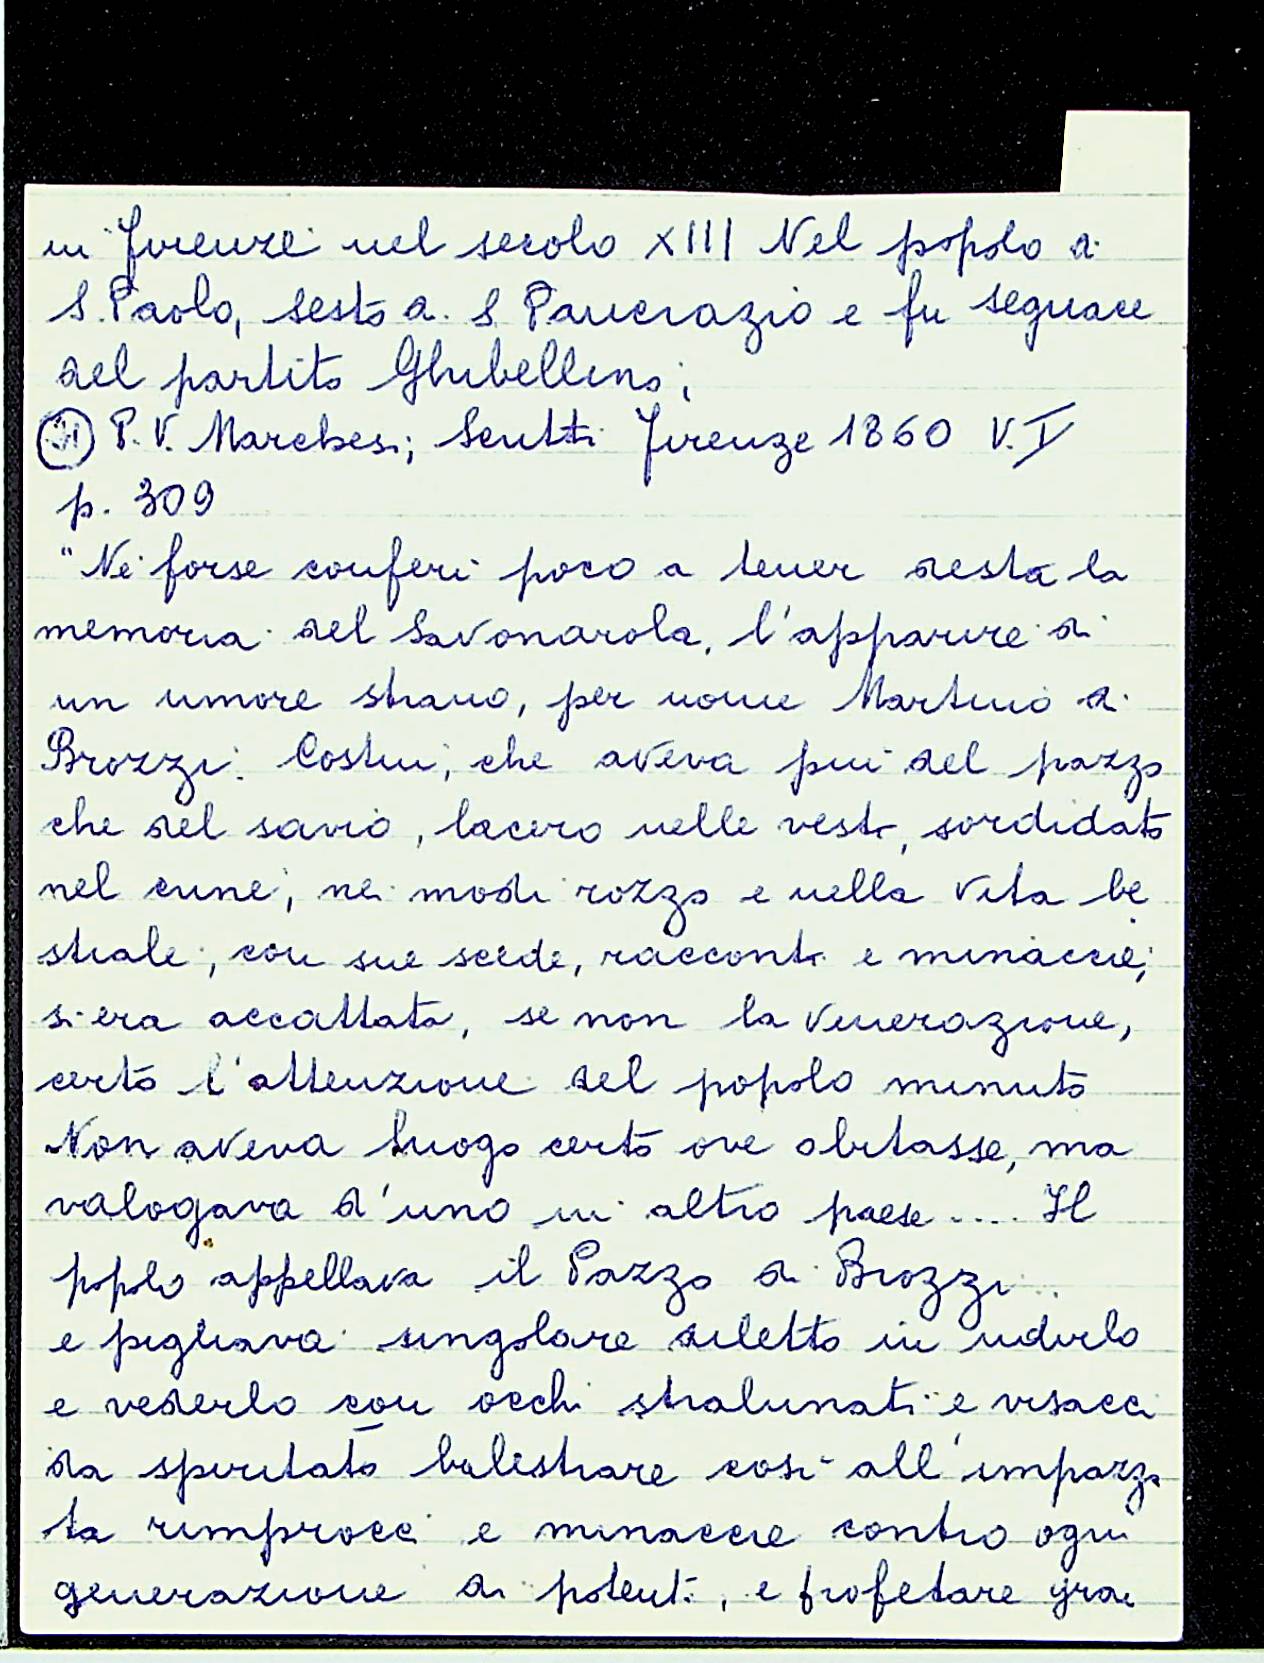 in Firenze nel secolo XIII Nel popolo di
S. Paolo, sesto di S. Pancrazio e fu seguace
del partito Ghibellino;
P. V. Marchesi; Scritti Firenze 1860 V. I
p. 309
"Nè forse conferì poco a tener desta la
memoria del Savonarola, l'apparire di
un umore strano, per nome Martino di
Brozzi. Costui, che aveva più del pazzo
che del savio, lacero nelle vesti, sordidato
nel crine, nei modi rozzo e nella vita be
stiale, con sue scede, racconti e minaccie,
si era accattata, se non la venerazione,
certo l'attenzione del popolo minuto
Non aveva luogo certo ove abitasse, ma
valogava d'uno in altro paese.... Il
popolo appellava il Pazzo di Brozzi...
e pigliava singolare diletto in udirlo
e vederlo con occhi stralunati e visacci
da spiritato balestrare così all'impazza
ta rimprocci e minaccie contro ogni
generazione di potenti, e profetare gran